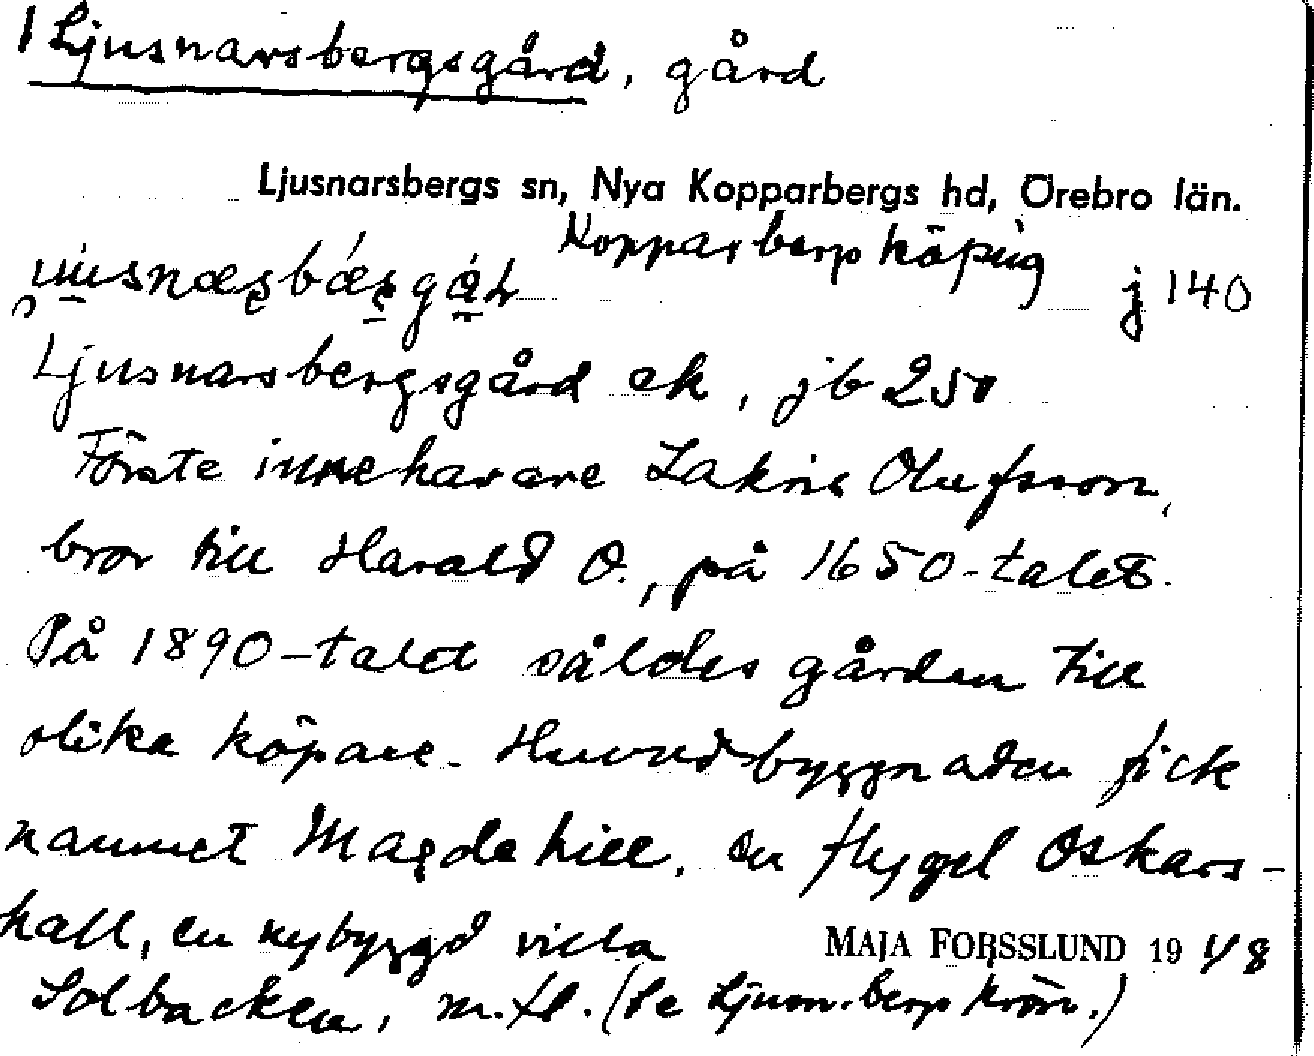 1 Ljusnarsbergsgård, gård
Ljusnarsbergs sn, Nya Kopparbergs hd, Örebro län.
Kopparberg köping
j 140
Ljusnarsbergsgård ek, jb 250
Förste innehavare Lakris Olufsson,
bror till Harald O., på 1650-talet.
På 1890-talet såldes gården till
olika köpare. Huvudbyggnaden fick
namnet Magdehill, en flygel Oskars-
hall, en nybyggd villa
MAJA FORSSLUND 1948
Solbacken, m.fl. (se Ljusn.berg krön.)